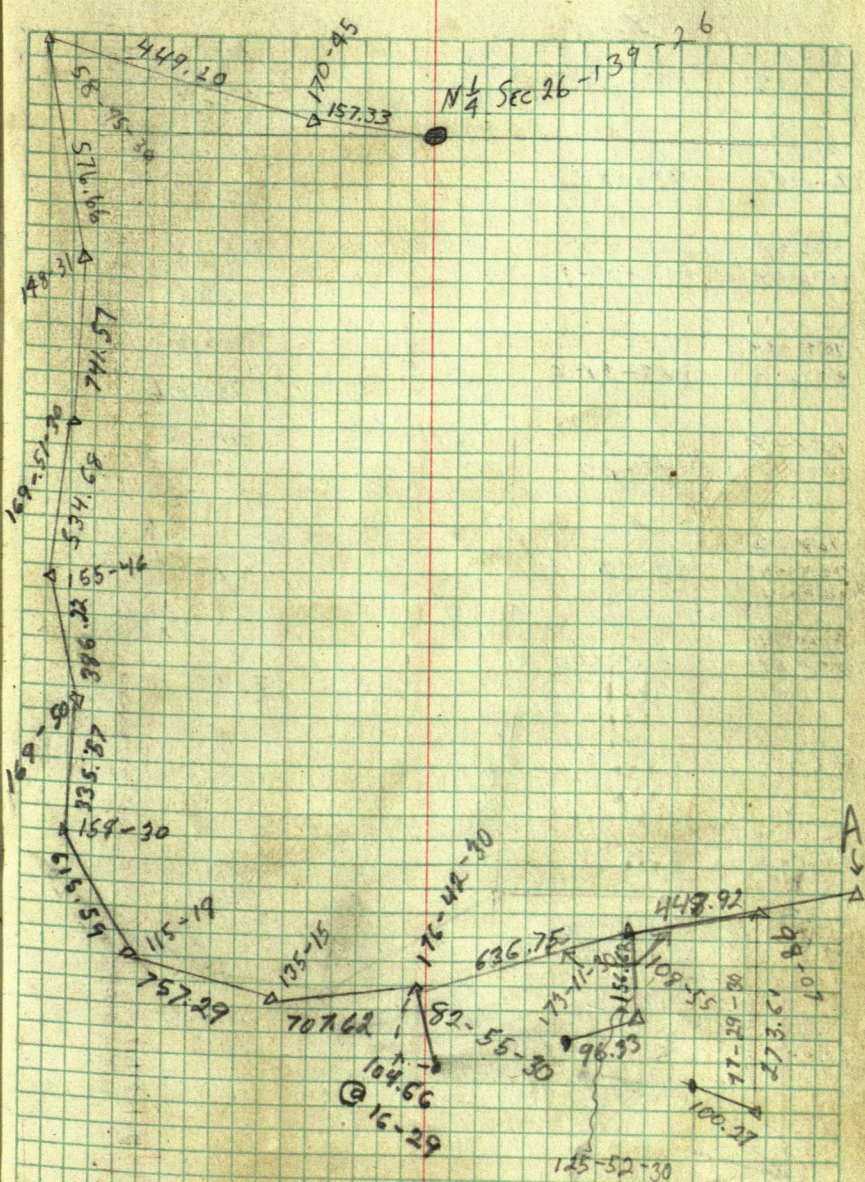 449.20
170-45
157.33
N 1/4 Sec 26-139-26
576.99
148-31
741.57
169-51-30
534.68
155-46
386.22
168-50
335.87
159-30
115-19
757.29
135-15
707.62
176-42-30
636.75
82-55-30
104.66
@
16-29
173-11-30
156.63
108-55
96.33
125-52-30
77-29-30
273.61
100.27
A